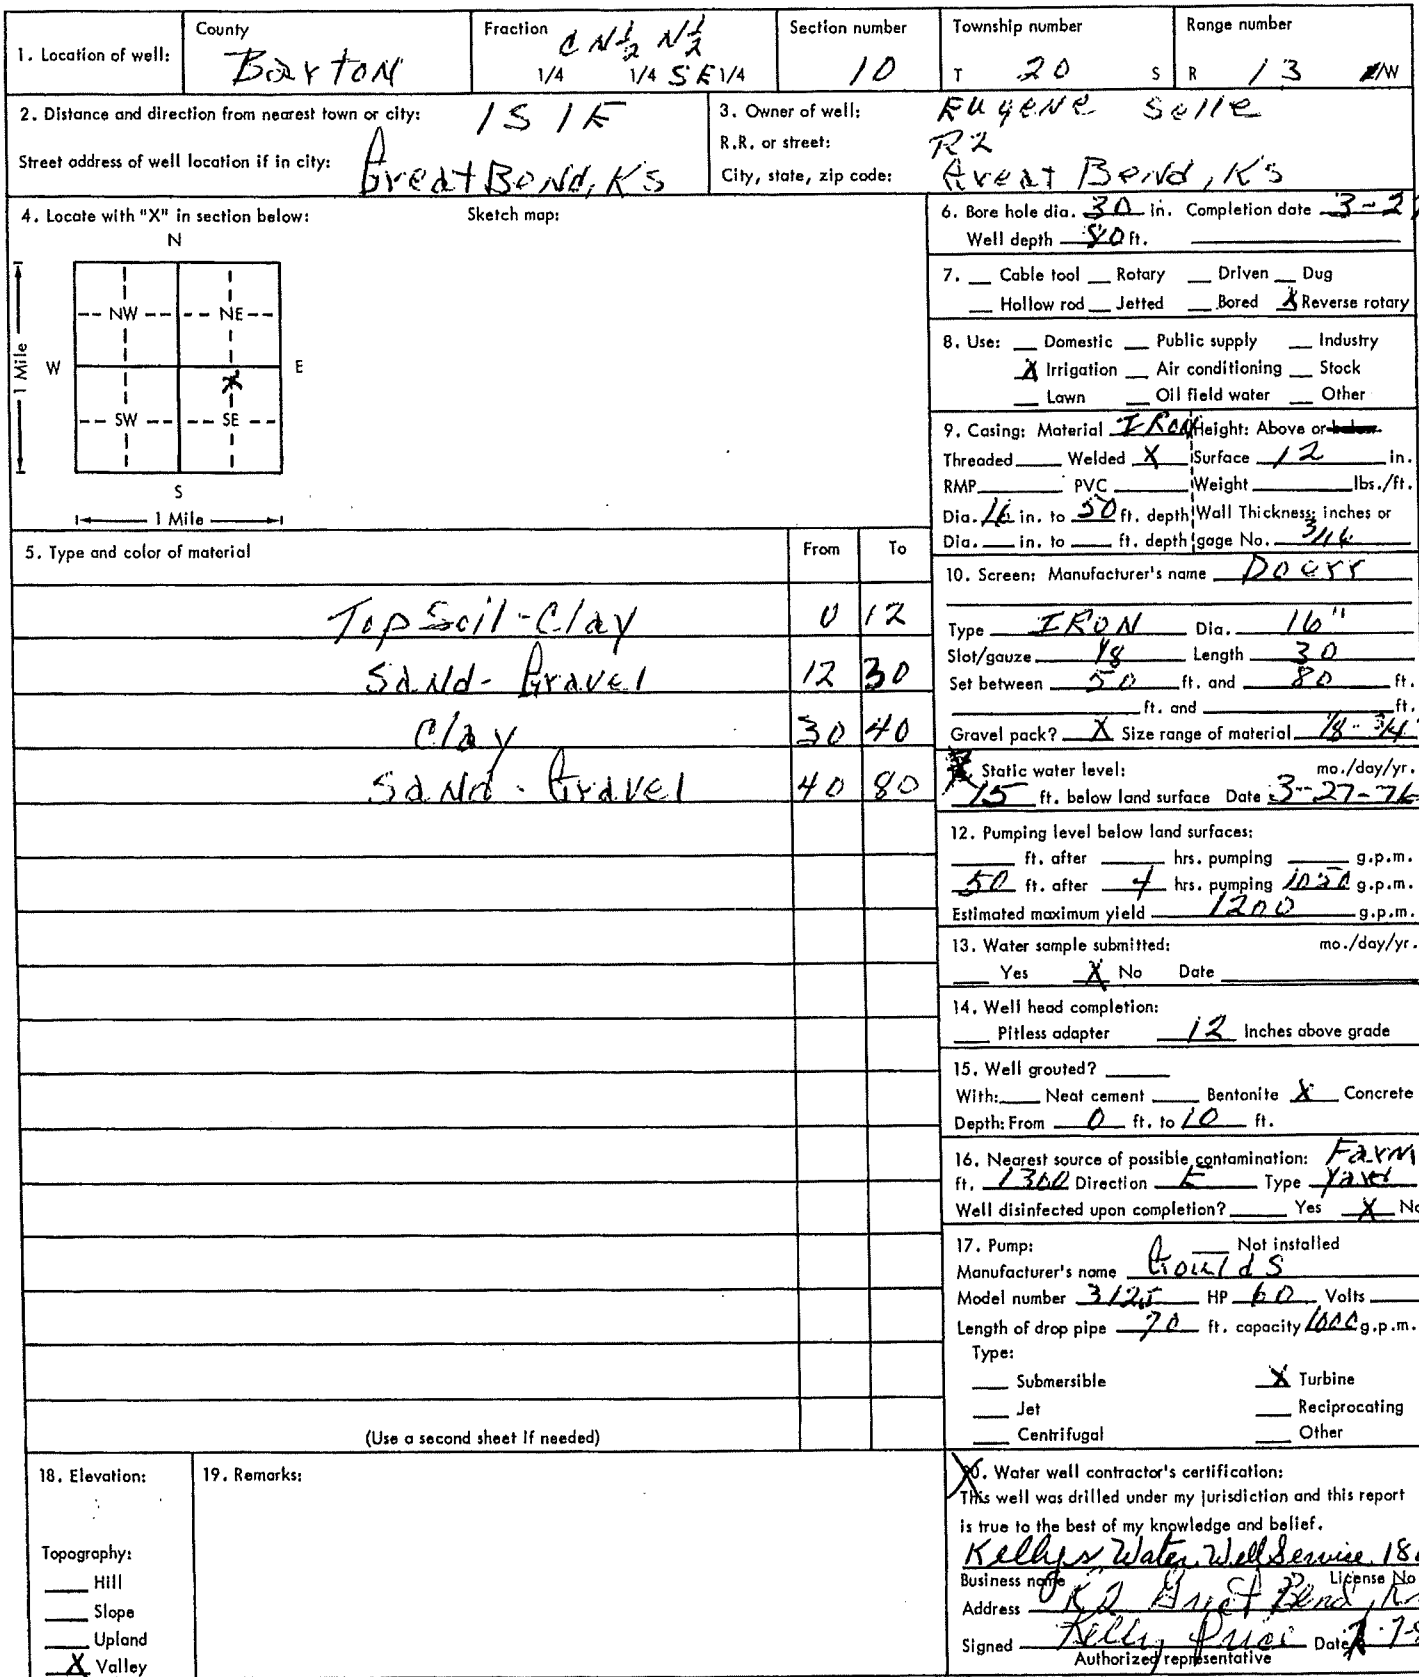 1. Location of well:
County
Barton
Fraction
C N½ N½
1/4 1/4 SE 1/4
Section number
10
Township number
T 20 S
Range number
R 13 E/W
2. Distance and direction from nearest town or city: 1S 1E
Street address of well location if in city: Great Bend, Ks
3. Owner of well: Eugene Selle
R.R. or street: R2
City, state, zip code: Great Bend, Ks
4. Locate with "X" in section below:
Sketch map:
N
NW NE
W E
X
SW SE
S
1 Mile
1 Mile
5. Type and color of material From To
Top Soil - Clay 0 12
Sand - Gravel 12 30
Clay 30 40
Sand - Gravel 40 80
(Use a second sheet if needed)
6. Bore hole dia. 30 in. Completion date 3-2
Well depth 80 ft.
7. Cable tool Rotary Driven Dug
Hollow rod Jetted Bored X Reverse rotary
8. Use: Domestic Public supply Industry
X Irrigation Air conditioning Stock
Lawn Oil field water Other
9. Casing: Material IRON Height: Above or below
Threaded Welded X Surface 12 in.
RMP PVC Weight lbs./ft.
Dia. 16 in. to 50 ft. depth Wall Thickness: inches or
Dia. in. to ft. depth gage No. 3/16
10. Screen: Manufacturer's name Doerr
Type IRON Dia. 16"
Slot/gauze 1/8 Length 30
Set between 50 ft. and 80 ft.
ft. and ft.
Gravel pack? X Size range of material 1/8 - 3/4
Static water level: mo./day/yr.
15 ft. below land surface Date 3-27-76
12. Pumping level below land surfaces:
ft. after hrs. pumping g.p.m.
50 ft. after 4 hrs. pumping 1050 g.p.m.
Estimated maximum yield 1200 g.p.m.
13. Water sample submitted: mo./day/yr.
Yes X No Date
14. Well head completion:
Pitless adapter 12 Inches above grade
15. Well grouted?
With: Neat cement Bentonite X Concrete
Depth: From 0 ft. to 10 ft.
16. Nearest source of possible contamination: Farm
ft. 1300 Direction E Type
Well disinfected upon completion? Yes X No
17. Pump: Not installed
Manufacturer's name Goulds
Model number 3125 HP 60 Volts
Length of drop pipe 70 ft. capacity 1000 g.p.m.
Type:
Submersible X Turbine
Jet Reciprocating
Centrifugal Other
18. Elevation:
Topography:
Hill
Slope
Upland
X Valley
19. Remarks:
20. Water well contractor's certification:
This well was drilled under my jurisdiction and this report
is true to the best of my knowledge and belief.
Kellys Water Well Service 18
Business name License No
Address R2 Great Bend, Ks
Signed Kelly Price Date
Authorized representative